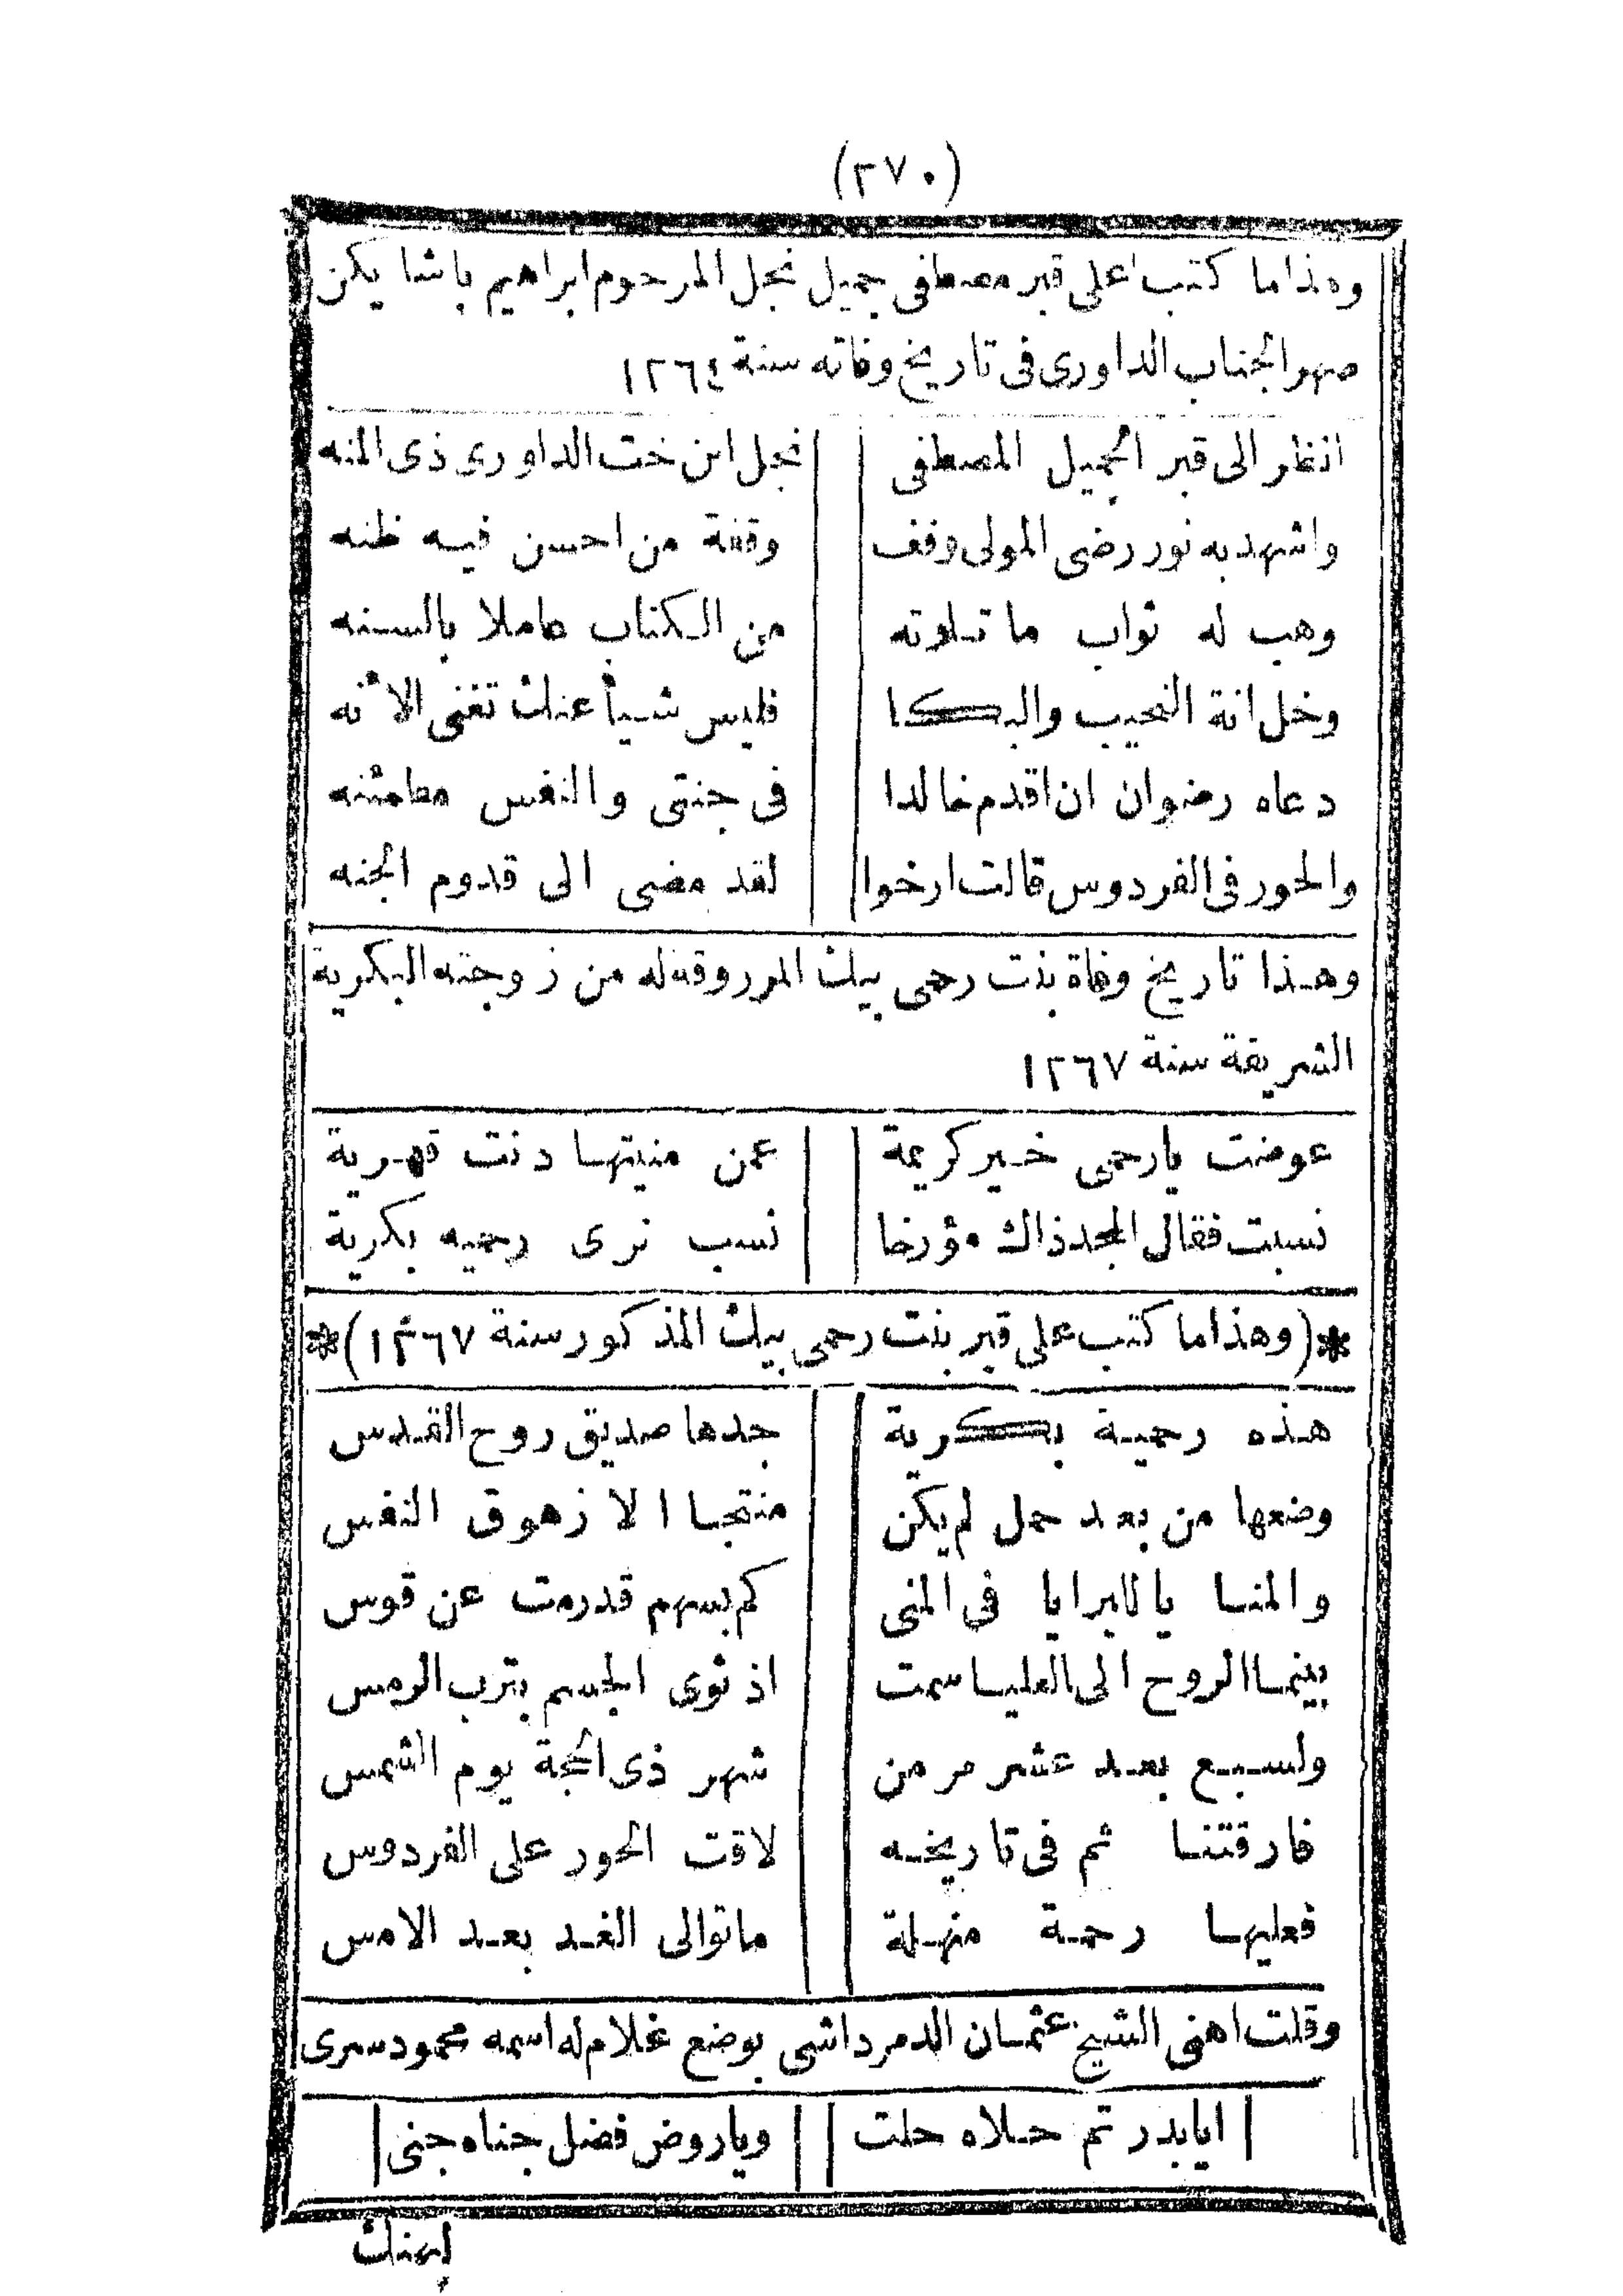 (٢٧٠)
وهذا ما كتب اعلى قبر مصطفى جميل نجل المرحوم ابراهيم باشا يكن
صهر الجناب الداورى فى تاريخ وفاته سنة ١٢٦٤
انظر الى قبر الجميل المصطفى نجل ابن خت الداورى ذى المنه
واشهد به نور رضى المولى وقف وقفة من احسن فيه ظنه
وهب له ثواب ما تلوته من الكتاب عاملا بالسنه
وخل انة النحيب والبكا فليس شيأ عنك تغنى الأنه
دعاه رضوان ان اقدم خالدا فى جنتى والنفس مطمئنه
والحور فى الفردوس قالت ارخوا لقد مضى الى قدوم الجنه
وهذا تاريخ وفاة بنت رحمى بيك المرزوقة له من زوجته البكرية
الشريفة سنة ١٢٦٧
عوضت يارحمى خير كريمة عمن منيتها دنت قهرية
نسبت فقال المجد ذاك مؤرخا نسب نرى رحميه بكرية
*(وهذا ما كتب على قبر بنت رحمى بيك المذكور سنة ١٢٦٧)*
هذه رحمية بكرية جدها صديق روح القدس
وضعها من بعد حمل لم يكن منتجا الا زهوق النفس
والمنايا للبرايا فى المنى كم بسهم قد رمت عن قوس
بينما الروح الى العليا سمت اذ ثوى الجسم بترب الرمس
ولسبع بعد عشر مر من شهر ذى الحجة يوم الشمس
فارقتنا ثم فى تاريخه لاقت الحور على الفردوس
فعليها رحمة منهلة ما توالى الغد بعد الامس
وقلت اهنى الشيخ عثمان الدمرداشى بوضع غلام له اسمه محمود سرى
ايا بدر تم حلاه حلت ويا روض فضل جناه جنى
ليهنك